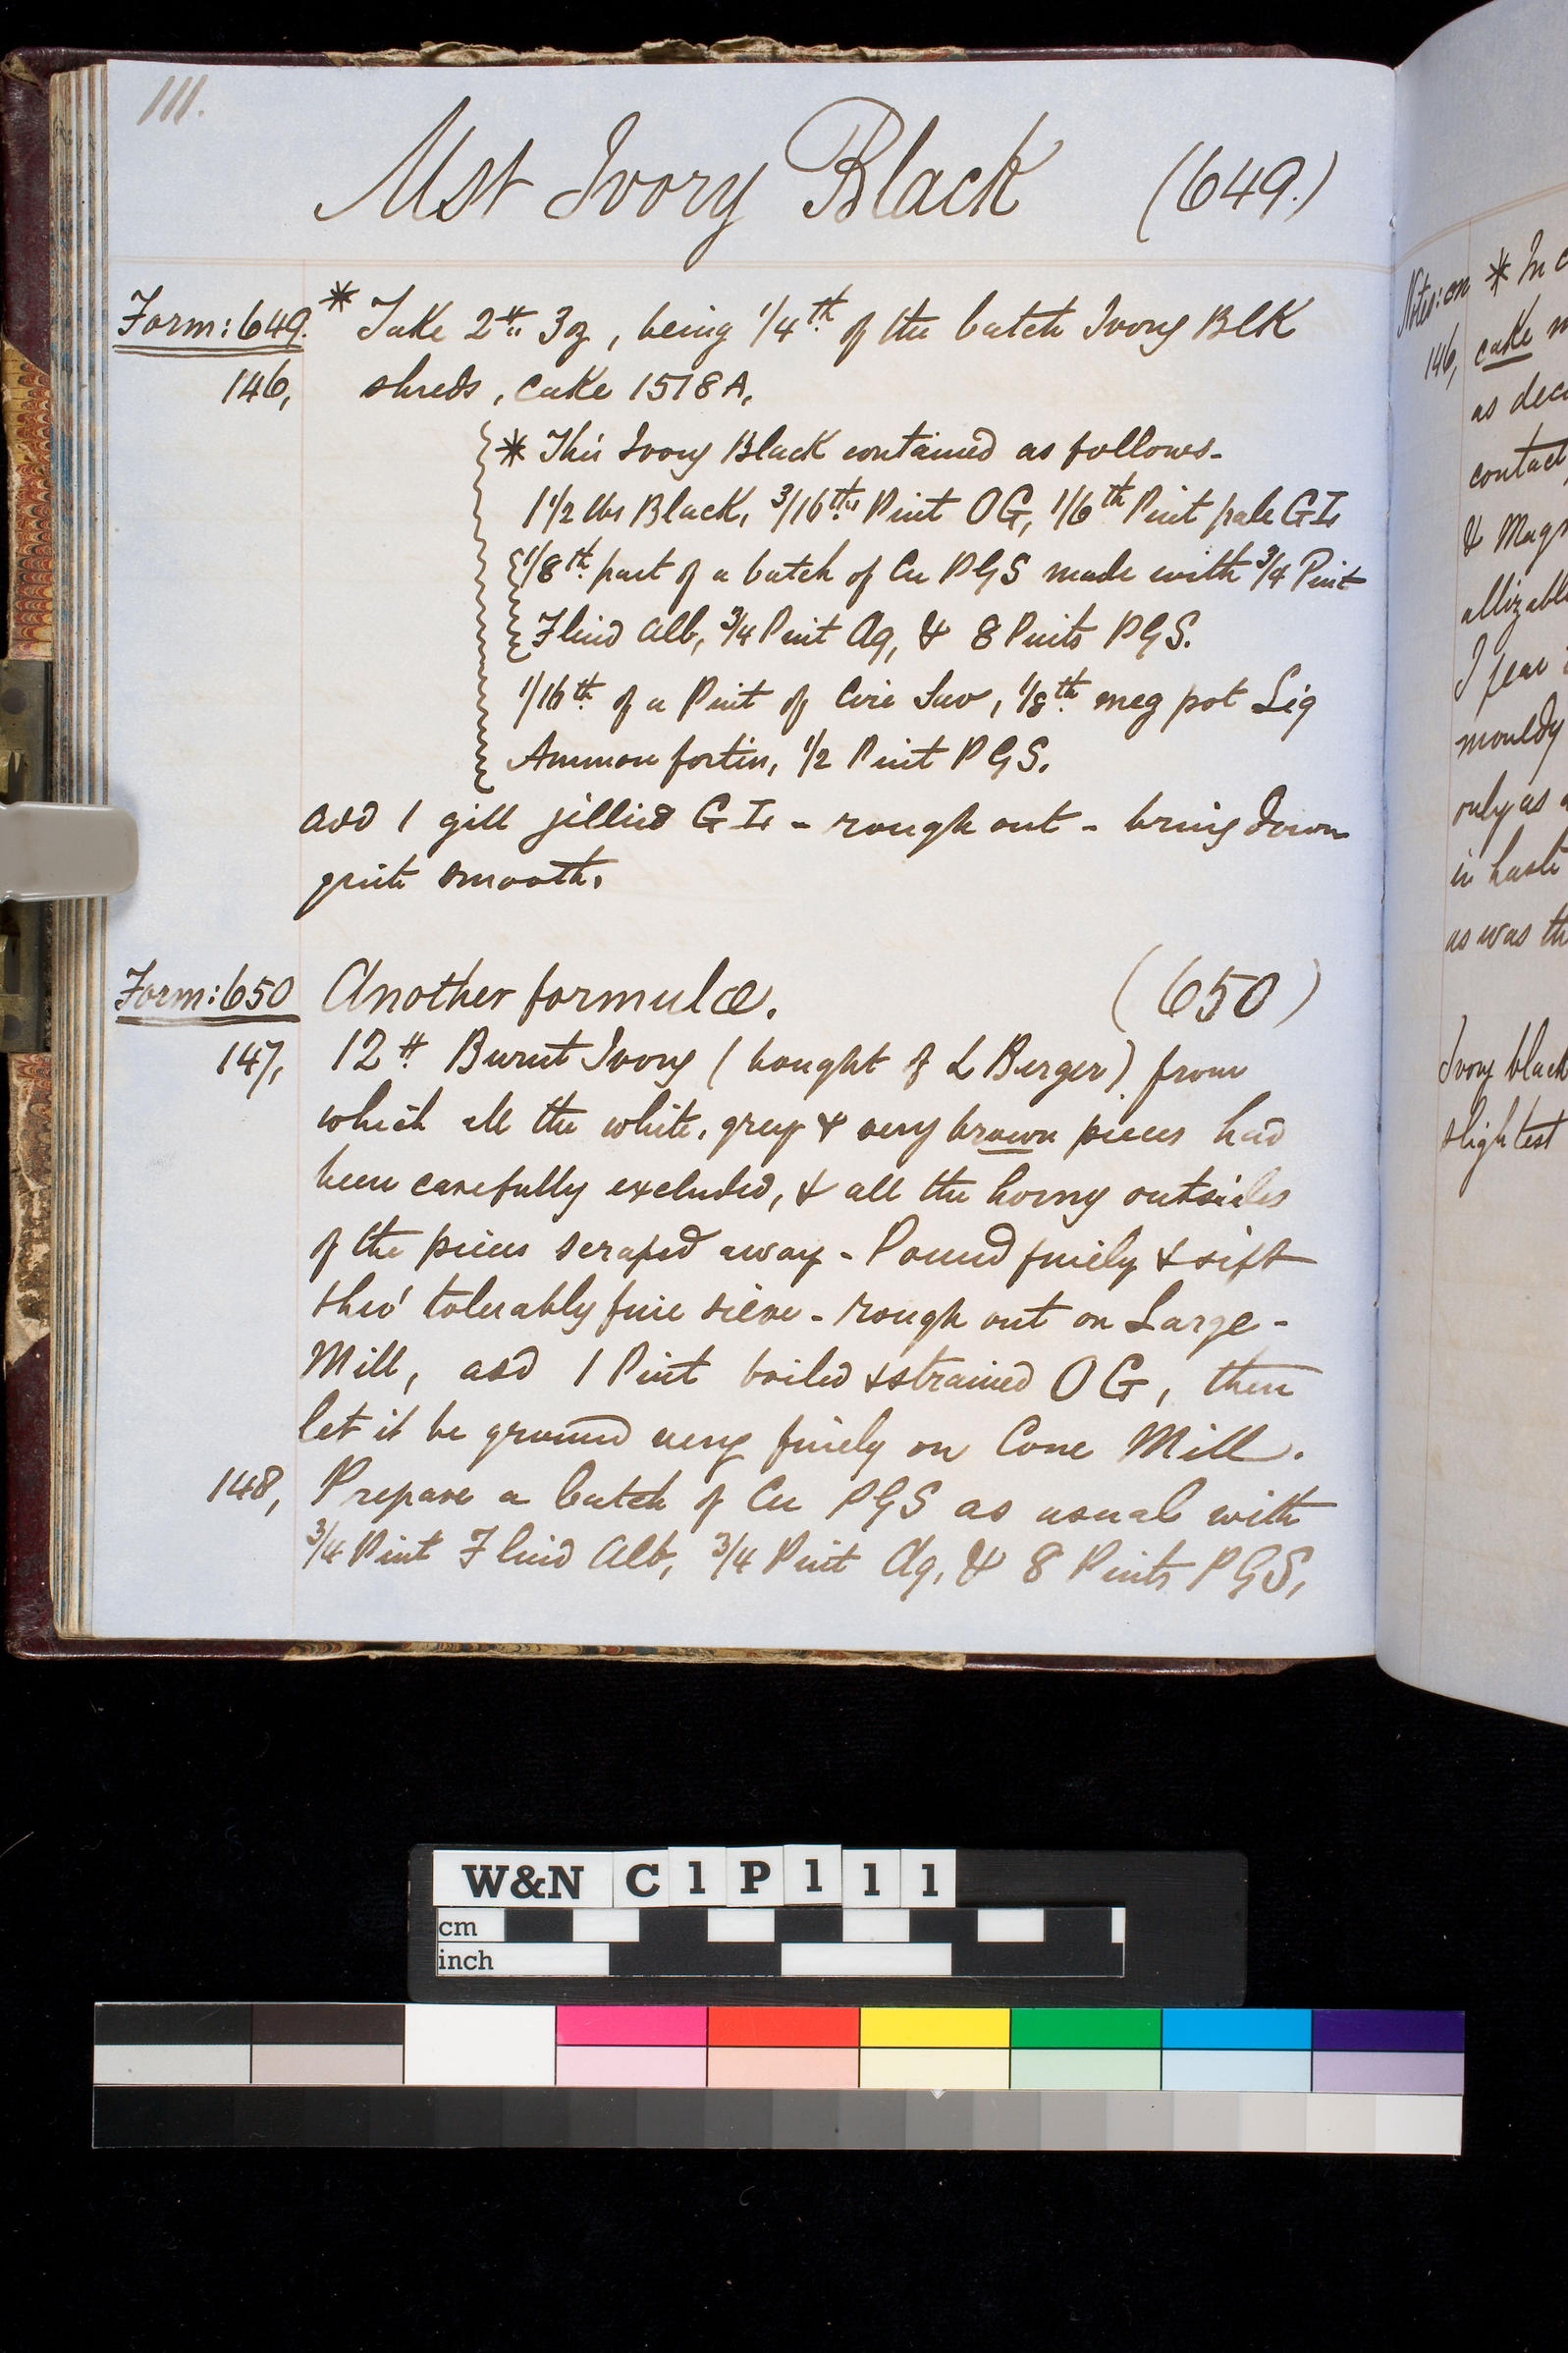 111.
Mst Ivory Black (649.)
Form: 649. * Take 2 lbs 3 oz, being 1/4th of the batch Ivory Blk
146, shreds, cake 1518 A,
* This Ivory Black contained as follows-
1 1/2 lbs Black, 3/16ths Pint OG, 1/6th Pint pale GI,
1/8th part of a batch of Cu PGS made with 3/4 Pint
Fluid Alb, 3/4 Pint Aq, & 8 Pints PGS.
1/16th of a Pint of Cire Sav, 1/8th meg pot Liq
Ammon fortin, 1/2 Pint PGS.
add 1 gill jellied GI, - rough out - bring down
quite smooth.
Form: 650 Another formulæ. (650)
147, 12 lb Burnt Ivory (bought of L Berger) from
which all the white, grey & very brown pieces had
been carefully excluded, & all the horny outsides
of the pieces scraped away - Pound finely & sift
thro' tolerably fine sieve - rough out on Large-
Mill, add 1 Pint boiled & strained OG, then
let it be ground very finely on Cone Mill.
148, Prepare a batch of Cu PGS as usual with
3/4 Pint Fluid Alb, 3/4 Pint Aq, & 8 Pints PGS,
Notes: on * In c
146, cake
as dec
contact
& Magn
allizable
I fear
mouldy
only as a
in haste
as was th
Ivory black
slightest
W&N C1P111
cm
inch